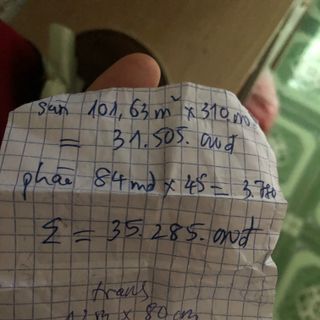 sàn 101,63 m² x 310.000
= 31.505.000đ
phào 84md x 45 = 3.780
Σ = 35.285.000đ
trans
12m x 80cm